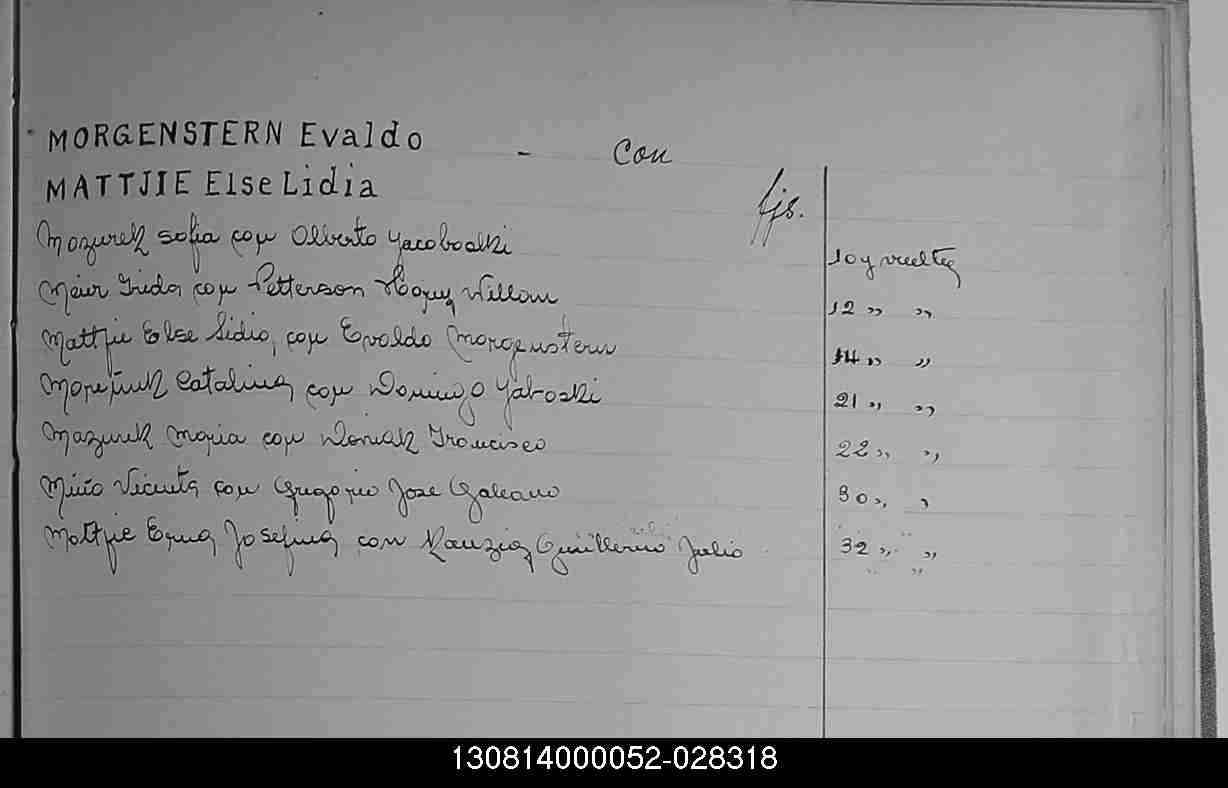 MORGENSTERN Evaldo - Con
MATTJIE Else Lidia
fjs.
Mazurek Sofia con Alberto Yacoboski 10 y vuelta
Meier Frida con Petterson Willam 12 " "
Mattjie Else Lidia, con Evaldo Morgenstern 14 " "
Catalina con Domingo Yaboski 21 " "
Mazurek Maria con Francisco 22 " "
Miño Vicenta con Gregorio Jose Galeano 30 " "
Mattjie Erna Josefina con Guillermo Julio 32 " "
130814000052-028318